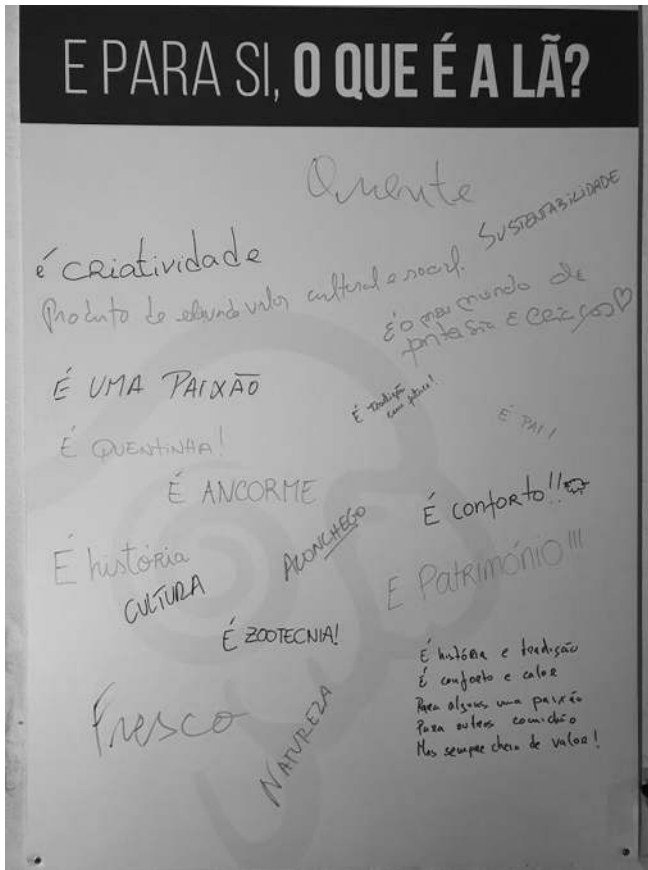 E PARA SI, O QUE É A LÃ?
Quente
SUSTENTABILIDADE
é criatividade
Produto de elevado valor cultural e social.
É o meu mundo de
fantasia e
É UMA PAIXÃO
É tradição
com futuro!
É PAI!
É QUENTINHA!
É ANCORME
É conforto!!
ACONCHEGO
É história
CULTURA
É Património!!!
É ZOOTECNIA!
É história e tradição
É conforto e calor
Para alguns uma paixão
Para outros comichão
Mas sempre cheia de valor!
Fresco
NATUREZA